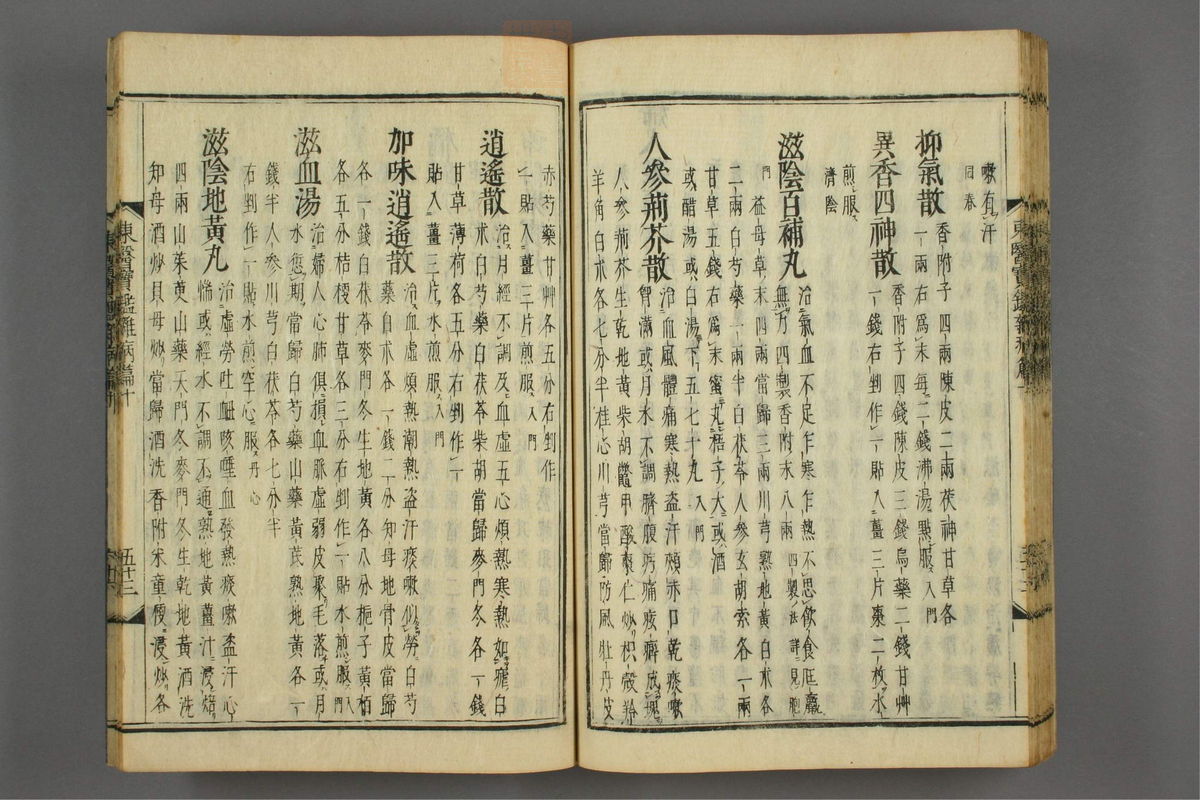 嗽有汗
同春
抑氣散
香附子四兩陳皮二兩茯神甘草各
一兩右爲末每二錢沸湯點服入門
異香四神散
香附子四錢陳皮三錢烏藥二錢甘艸
一錢右剉作一貼入薑三片棗二枚水
煎服濟陰
滋陰百補丸
治氣血不足乍寒乍熱不思飲食尫羸
無力四製香附末八兩四製法詳見胞門
益母草末四兩當歸三兩川芎熟地黃白朮各
二兩白芍藥一兩半白茯苓人參玄胡索各一兩
甘草五錢右爲末蜜丸梧子大或酒
或醋湯或白湯下五七十丸入門
人參荊芥散
治血風體痛寒熱盜汗頰赤口乾痰嗽
胷滿或月水不調臍腹㽲痛痃癖成塊
人參荊芥生乾地黃柴胡鱉甲酸棗仁炒枳殼羚
羊角白朮各七分半桂心川芎當歸防風牡丹皮
東醫寶鑑雜病篇十
赤芍藥甘艸各五分右剉作
一貼入薑三片煎服入門
逍遙散
治月經不調及血虛五心煩熱寒熱如瘧白
朮白芍藥白茯苓柴胡當歸麥門冬各一錢
甘草薄荷各五分右剉作一
貼入薑三片水煎服入門
加味逍遙散
治血虛煩熱潮熱盜汗痰嗽似勞白芍
藥白朮各一錢二分知母地骨皮當歸
各一錢白茯苓麥門冬生地黃各八分梔子黃栢
各五分桔梗甘草各三分右剉作一貼水煎服入門
滋血湯
治婦人心肺俱損血脈虛弱皮聚毛落或月
水愆期當歸白芍藥山藥黃芪熟地黃各一
錢半人參川芎白茯苓各七分半
右剉作一貼水煎空心服丹心
滋陰地黃丸
治虛勞吐衄咳唾血發熱痰嗽盜汗心
惴或經水不調不通熟地黃薑汁浸焙
四兩山茱萸山藥天門冬麥門冬生乾地黃酒洗
知母酒炒貝母炒當歸酒洗香附米童便浸炒各
東醫寶鑑雜病篇十
五十三